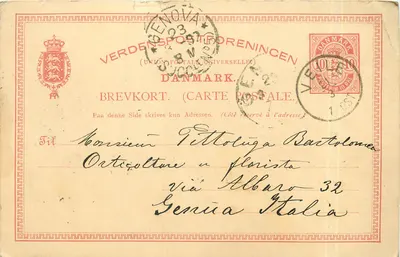 VERDENSPOSTFORENINGEN
(UNION POSTALE UNIVERSELLE)
DANMARK.
BREVKORT. (CARTE POSTALE.)
Paa denne Side skrives kun Adressen. (Côté réservé à l'adresse.)
GENOVA
VEJLE
DANMARK
Til Monsieur Pittoluga Bartolomeo
Orticoltore u florista
Viá Albaro 32
Genua Italia